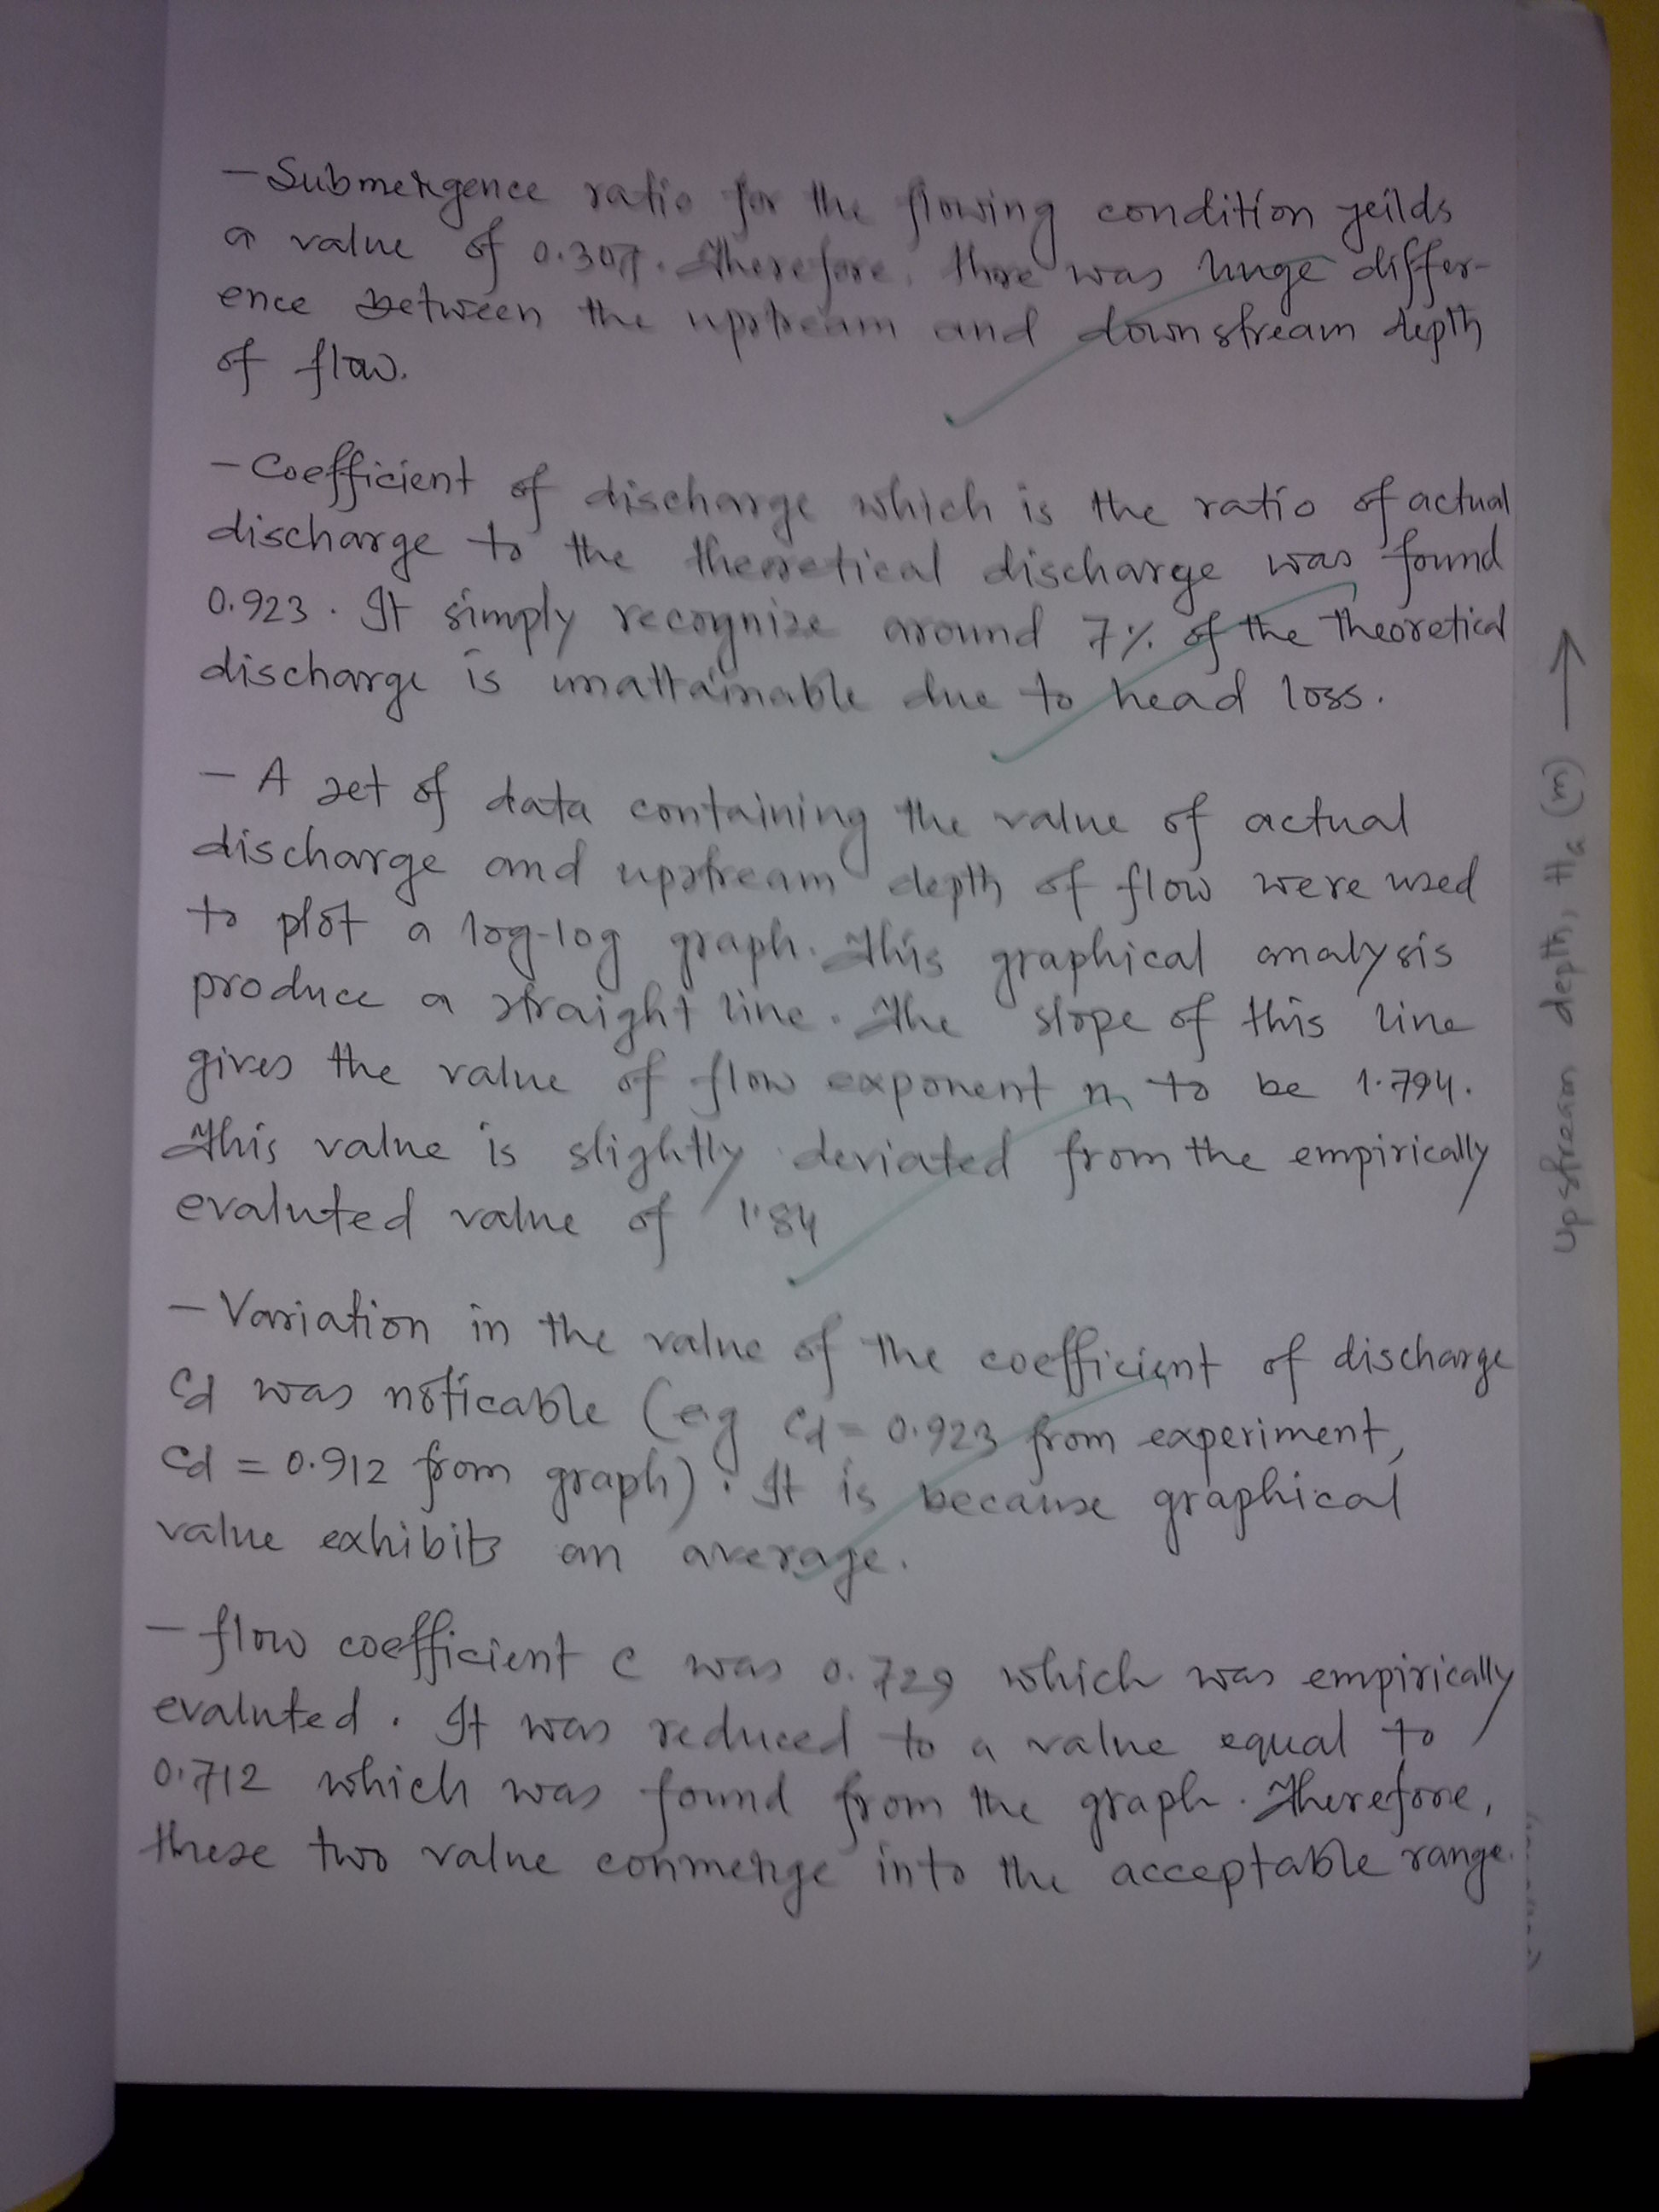 - Submergence ratio for the flowing condition yeilds
a value of 0.307. Therefore, there was huge differ-
ence between the upstream and downstream depth
of flow.
- Coefficient of discharge which is the ratio of actual
discharge to the theoretical discharge was found
0.923. It simply recognize around 7% of the theoretical
discharge is unattainable due to head loss.
- A set of data containing the value of actual
discharge and upstream depth of flow were used
to plot a log-log graph. This graphical analysis
produce a straight line. The slope of this line
gives the value of flow exponent n to be 1.794.
This value is slightly deviated from the empirically
evaluted value of 1.84
- Variation in the value of the coefficient of discharge
Cd was noticable (eg Cd = 0.923 from experiment,
Cd = 0.912 from graph). It is because graphical
value exhibits an average.
- flow coefficient C was 0.729 which was empirically
evaluted. It was reduced to a value equal to
0.712 which was found from the graph. Therefore,
these two value conmerge into the acceptable range.
Upstream depth, Ha (m) →